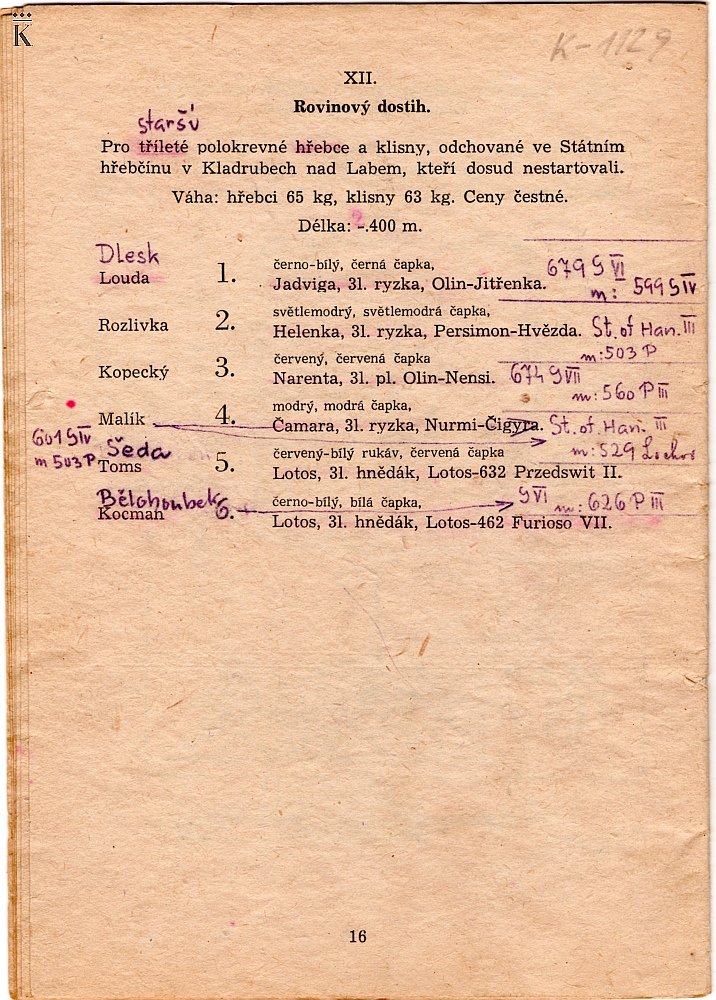 K
K-1129
XII.
Rovinový dostih.
starší
Pro tříleté polokrevné hřebce a klisny, odchované ve Státním
hřebčínu v Kladrubech nad Labem, kteří dosud nestartovali.
Váha: hřebci 65 kg, klisny 63 kg. Ceny čestné.
Délka: -.400 m.
Dlesk
Louda 1. černo-bílý, černá čapka, 679 S VI
Jadviga, 3l. ryzka, Olin-Jitřenka. m: 599 S IV
Rozlivka 2. světlemodrý, světlemodrá čapka,
Helenka, 3l. ryzka, Persimon-Hvězda. St. of Han. III
Kopecký 3. červený, červená čapka m: 503 P
Narenta, 3l. pl. Olin-Nensi. 674 S VII
m: 560 P III
Malík 4. modrý, modrá čapka,
Čamara, 3l. ryzka, Nurmi-Čigyra. St. of. Han. III
601 S IV
m 503 P. Šeda
Toms 5. červený-bílý rukáv, červená čapka m: 529
Lotos, 3l. hnědák, Lotos-632 Przedswit II.
Bělohoubek
Kocman 6. černo-bílý, bílá čapka, S VI m: 626 P III
Lotos, 3l. hnědák, Lotos-462 Furioso VII.
16